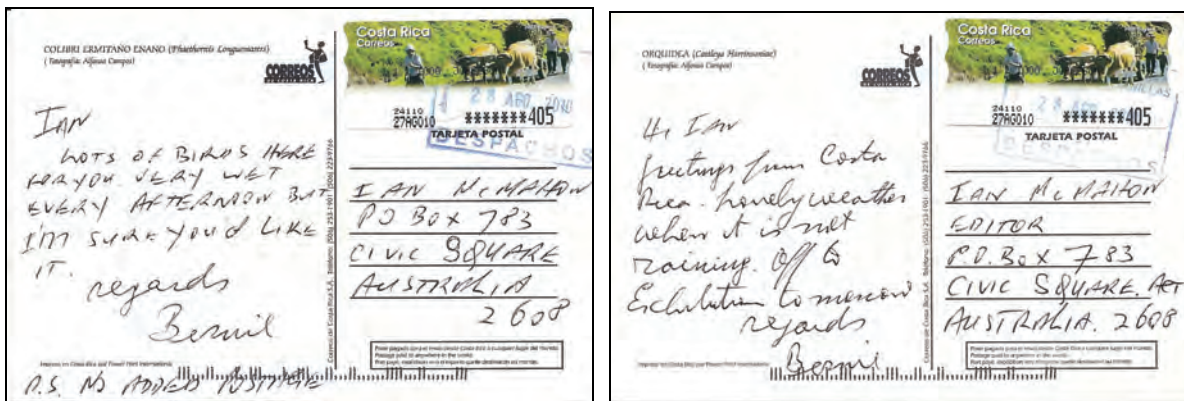 COLIBRI ERMITAÑO ENANO (Phaethornis Longuemareus)
(Fotografía: Alfonso Campos)
CORREOS
Costa Rica
Correos
28 AGO 2010
24110
27AGO10 *******405
TARJETA POSTAL
DESPACHOS
IAN
LOTS OF BIRDS HERE
FOR YOU. VERY WET
EVERY AFTERNOON BUT
I'M SURE YOU'd LIKE
IT.
regards
Bernie
P.S. NO ADDED POSTAGE
IAN McMAHON
PO BOX 783
CIVIC SQUARE
AUSTRALIA
2608
Correos de Costa Rica S.A. Teléfono: (506) 253-1901 (506) 223-9766
Postage paid to anywhere in the world.
ORQUIDEA
(Fotografía: Alfonso Campos)
CORREOS
Costa Rica
Correos
28 AGO
24110
27AGO10 *******405
TARJETA POSTAL
DESPACHOS
Hi IAN
Greetings from Costa
Rica. Lovely weather
when it is not
raining. Off to
Exhibition tomorrow
regards
Bernie
IAN McMAHON
EDITOR
P.O. BOX 783
CIVIC SQUARE. ACT
AUSTRALIA. 2608
Correos de Costa Rica S.A. Teléfono: (506) 253-1901 (506) 223-9766
Postage paid to anywhere in the world.